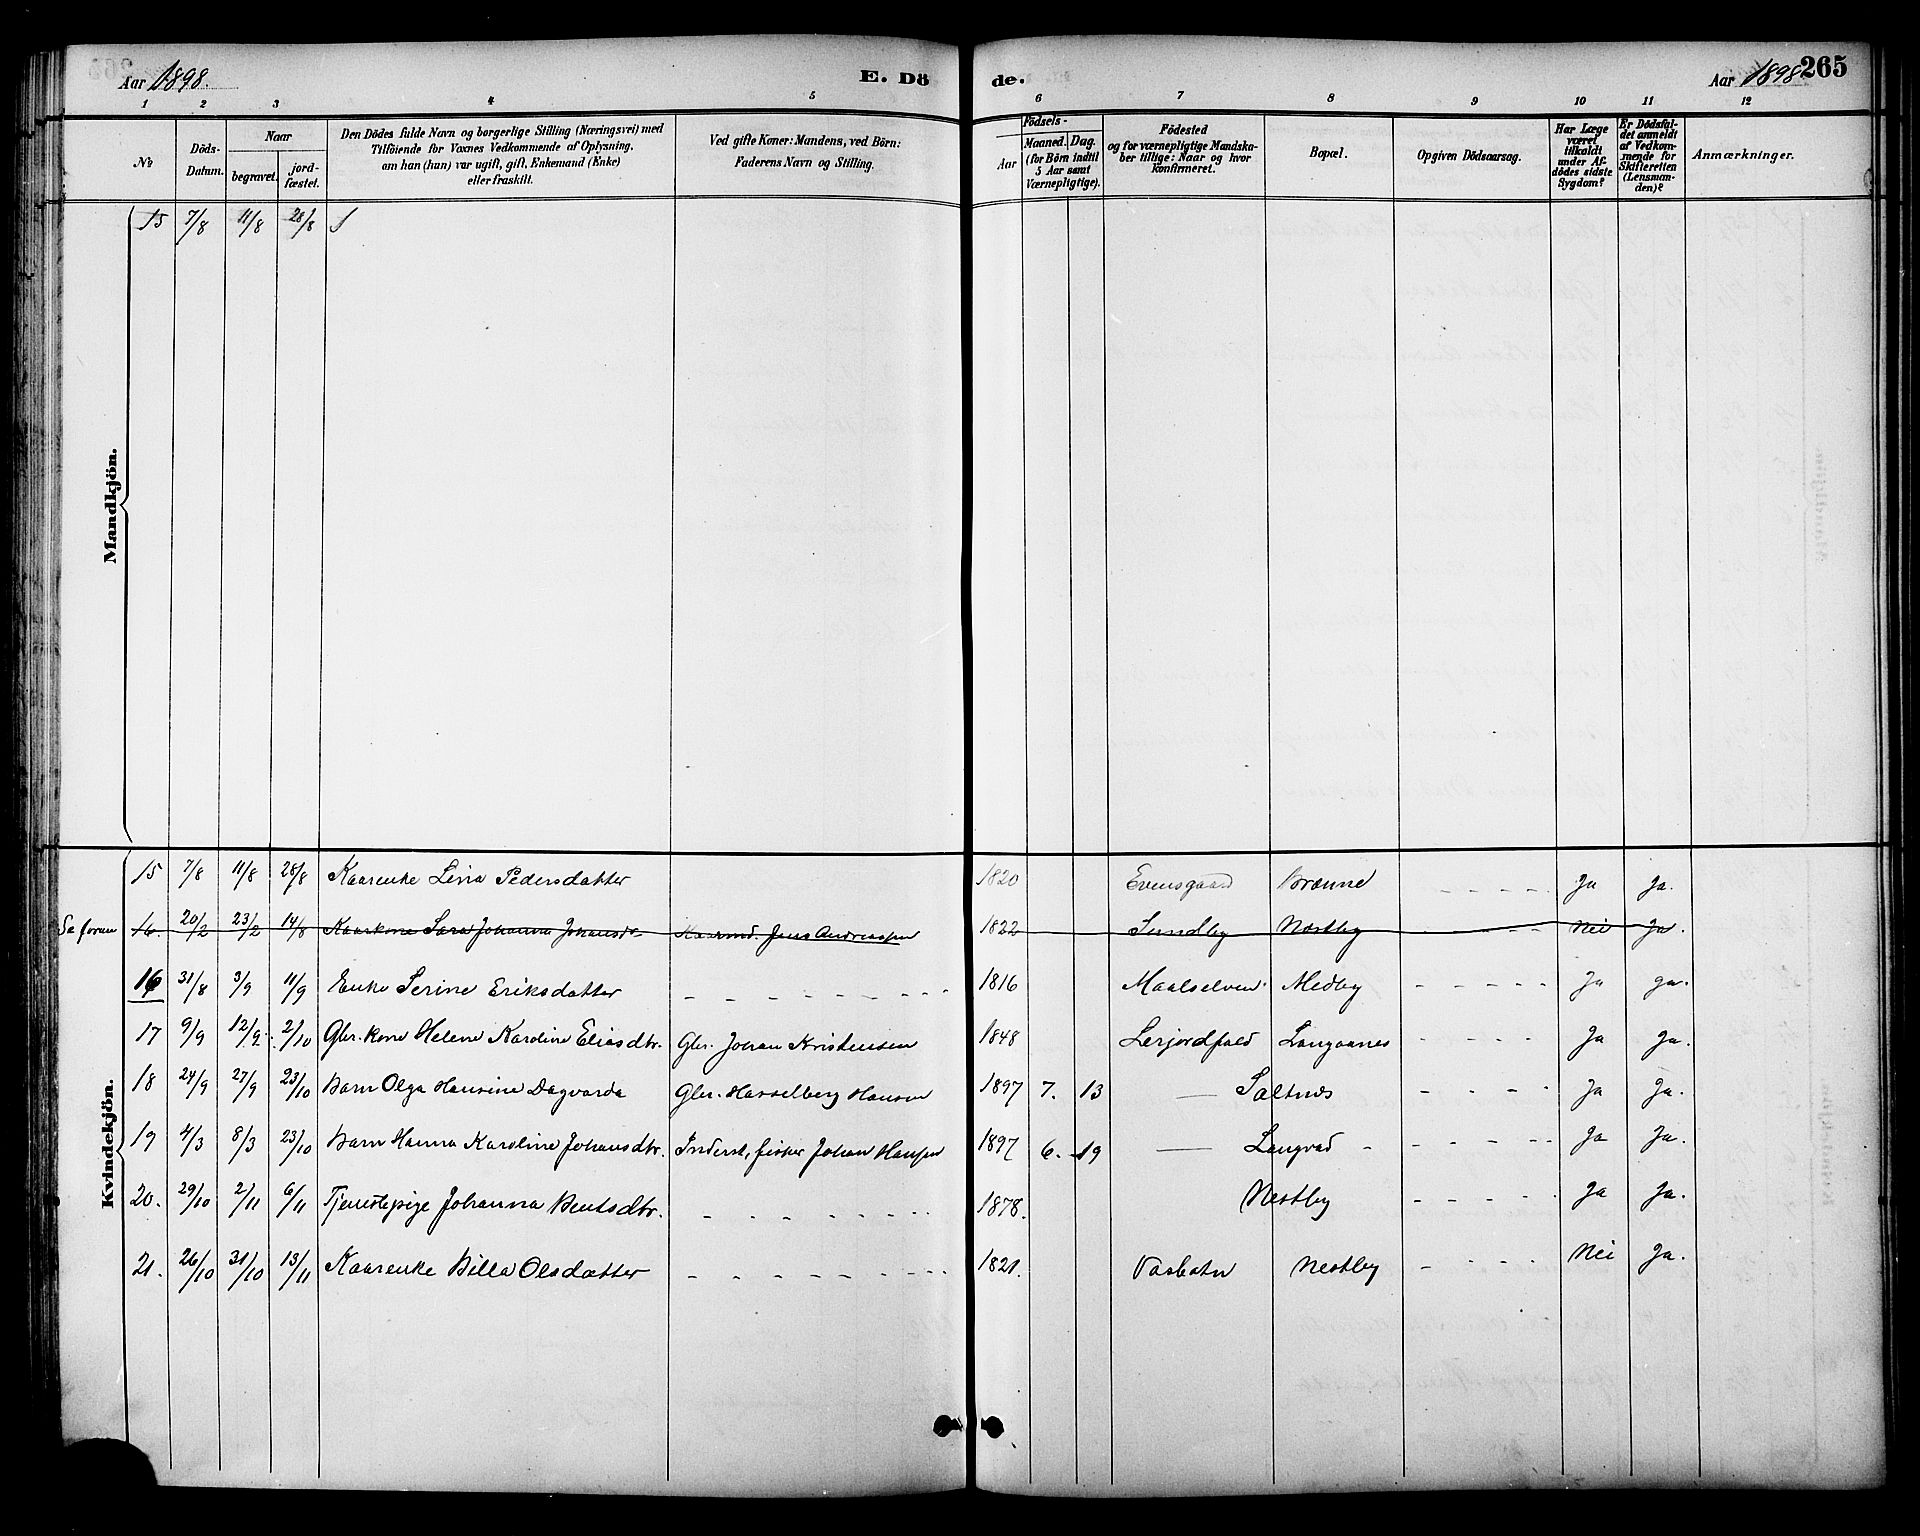 Aar 1898. E. Dö de. Aar 1898 265
1 2 3 4 5 6 7 8 9 10 11 12
No
Döds-
Datum.
Naar
begravet.
jord-
fæstet.
Den Dödes fulde Navn og borgerlige Stilling (Næringsvei) med
Tilföiende for Voxnes Vedkommende af Oplysning,
om han (hun) var ugift, gift, Enkemand (Enke)
eller fraskilt.
Ved gifte Koner: Mandens, ved Börn:
Faderens Navn og Stilling.
Födsels-
Aar
Maaned. Dag.
(for Börn indtil
5 Aar samt
Værnepligtige).
Födested
og for værnepligtige Mandska-
ber tillige: Naar og hvor
konfirmeret.
Bopæl.
Opgiven Dödsaarsag.
Har Læge
været
tilkaldt
under Af-
dödes sidste
Sygdom?
Er Dödsfal-
det anmeldt
af Vedkom-
mende for
Skifteretten
(Lensman-
den)?
Anmærkninger.
Mandkjön.
15 7/8 11/8 28/8
Kvindekjön.
15 7/8 11/8 28/8 Kaarenke Lina Pedersdatter 1820 Evensgaard Brænne - - - - - Ja Ja.
Se foran 16. 20/2 23/2 14/8 Kaarkone Sara Johanna Johansd. Kaarmd. Jens Andreassen 1822 Sundby Nestby - - - - Nei Ja.
16 31/8 3/9 11/9 Enke Serine Eriksdatter - - - - - - - - - 1816 Maalselven Medby - - - - - Ja ja.
17 9/9 12/9 2/10 Gbr.kone Helene Karoline Eliasdtr. Gbr. Johan Kristensen 1848 Lerjordfald Langaanes - - - - Ja Ja.
18 24/9 27/9 23/10 Barn Olga Hansine Dagvarda Gbr. Hasselberg Hansen 1897 7. 13 — Saltnes - - - - Ja Ja.
19 4/3 8/3 23/10 Barn Hanna Karoline Johansdtr. Inderst, fisker Johan Hansen 1897 6. 19 — Langvad - - - - - Ja Ja.
20. 29/10 2/11 6/11 Tjenestepige Johanna Bentsdtr. - - - - - - - - 1878. Nestby - - - - - Ja Ja.
21. 26/10 31/10 13/11 Kaarenke Billa Olsdatter - - - - - - - - - 1821. Vasbotn Nestby - - - - - Nei Ja.